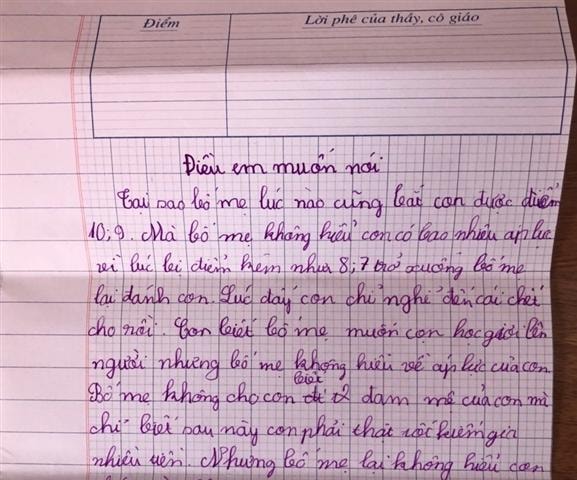 Điểm
Lời phê của thầy, cô giáo
Điều em muốn nói
Tại sao bố mẹ lúc nào cũng bắt con được điểm
10; 9. Mà bố mẹ không hiểu con có bao nhiêu áp lực
vì lúc bị điểm kém như 8; 7 trở xuống bố mẹ
lại đánh con. Lúc đấy con chỉ nghĩ đến cái chết
cho rồi. Con biết bố mẹ muốn con học giỏi lên
người nhưng bố mẹ không hiểu về áp lực của con.
Bố mẹ không cho con biết đam mê của con mà
chỉ biết sau này con phải thật
nhiều . Nhưng bố mẹ lại không hiểu con